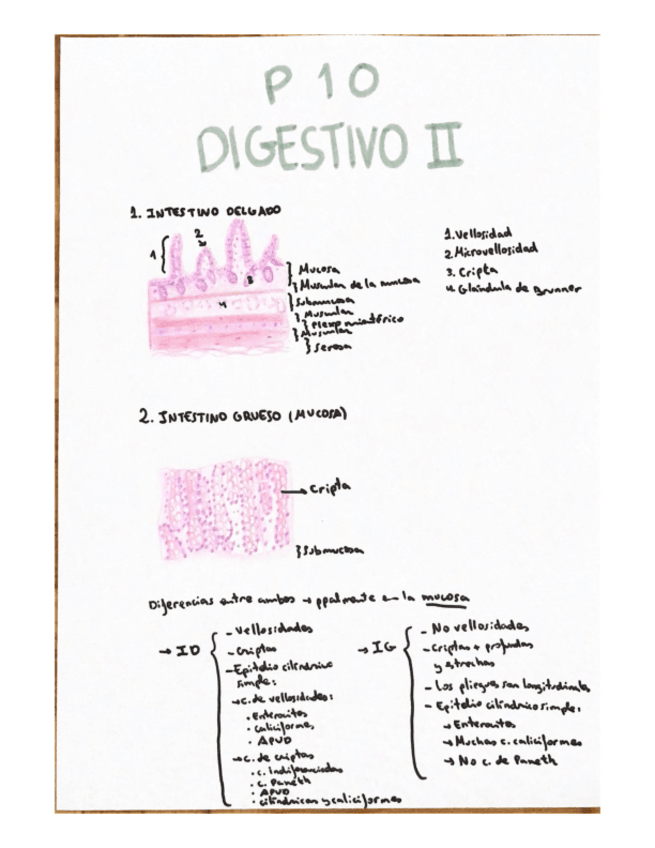 P 10
DIGESTIVO II
1. INTESTINO DELGADO
1
2
3
4
Mucosa
Muscular de la mucosa
Submucosa
Muscular
Plexo mientérico
Muscular
Serosa
1. Vellosidad
2. Microvellosidad
3. Cripta
4. Glándula de Brunner
2. INTESTINO GRUESO (MUCOSA)
→ Cripta
Submucosa
Diferencias entre ambos → ppalmente en la mucosa
→ ID
- Vellosidades
- Criptas
- Epitelio cilíndrico
simple:
→ c. de vellosidades:
• Enterocitos
• Caliciformes
• APUD
→ c. de criptas
• c. Indiferenciadas
• c. Paneth
• APUD
• cilíndricas y caliciformes
→ IG
- No vellosidades
- Criptas + profundas
y estrechas
- Los pliegues son longitudinales
- Epitelio cilíndrico simple:
→ Enterocitos
→ Muchas c. caliciformes
→ No c. de Paneth